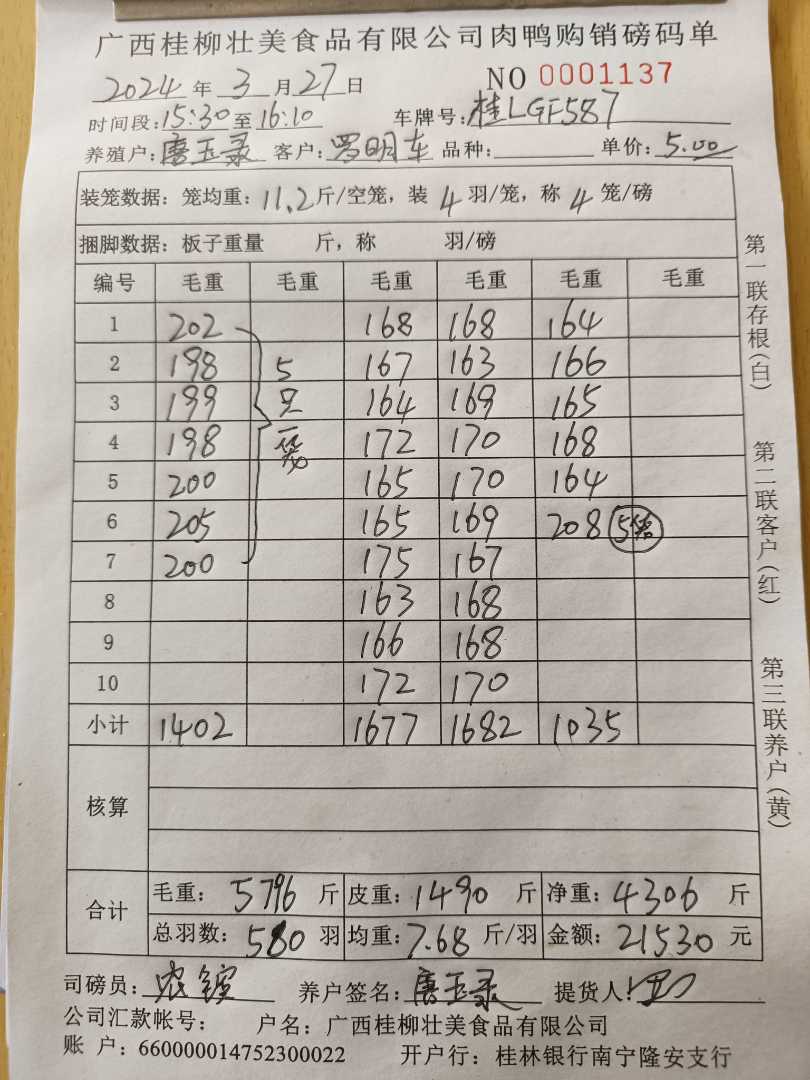 广西桂柳壮美食品有限公司肉鸭购销磅码单
2024年3月27日 NO 0001137
时间段:15:30至16:10 车牌号:桂LGF587
养殖户:唐玉录 客户:罗明车 品种: 单价:5.00
装笼数据:笼均重:11.2斤/空笼,装4羽/笼,称4笼/磅
捆脚数据:板子重量 斤,称 羽/磅
编号 毛重 毛重 毛重 毛重 毛重 毛重
1 202 168 168 164
2 198 5 167 163 166
3 199 只 164 169 165
4 198 一笼 172 170 168
5 200 165 170 164
6 205 165 169 208 5笼
7 200 175 167
8 163 168
9 166 168
10 172 170
小计 1402 1677 1682 1035
核算
合计 毛重:5796斤 皮重:1490斤 净重:4306斤
总羽数:580羽 均重:7.68斤/羽 金额:21530元
司磅员: 养户签名:唐玉录 提货人:
公司汇款帐号: 户名:广西桂柳壮美食品有限公司
账 户:660000014752300022 开户行:桂林银行南宁隆安支行
第一联存根(白)
第二联客户(红)
第三联养户(黄)